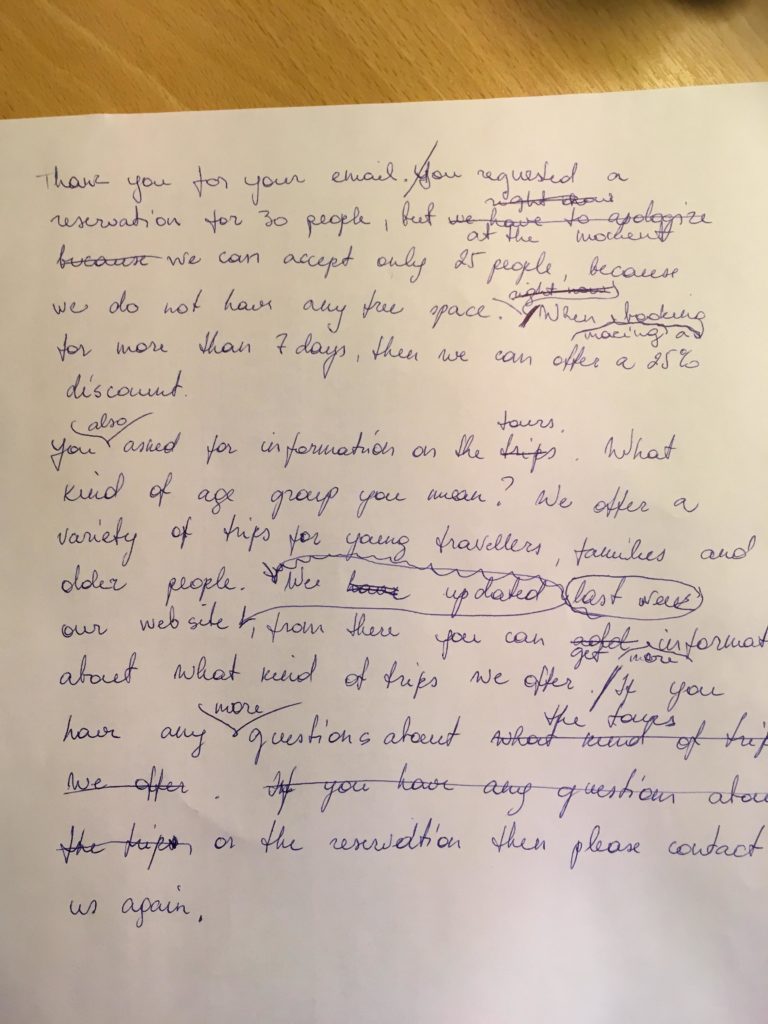 Thank you for your email. You requested a
right now
reservation for 30 people, but we have to apologize
at the moment
because we can accept only 25 people, because
right now
we do not have any free space. When booking
making a
for more than 7 days, then we can offer a 25%
discount.
also
tours.
You asked for information on the trips. What
kind of age group you mean? We offer a
variety of trips for young travellers, families and
older people. We have updated last week
our web site, from there you can informat
get more
about what kind of trips we offer. If you
more
the tours
have any questions about what kind of trip
we offer. If you have any questions abou
the trips, or the reservation then please contact
us again.